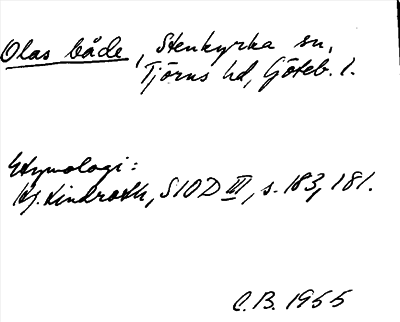 Olas både, Stenkyrka sn,
Tjörns hd, Göteb. l.
Etymologi:
Hj. Lindroth, SIOD III, s. 183, 181.
C.B. 1955